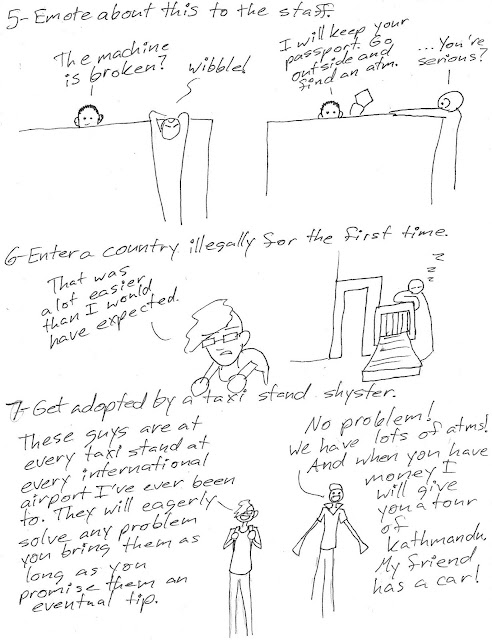 5-Emote about this to the staff.
The machine
is broken?
Wibble!
I will keep your
passport. Go
outside and
find an atm.
...You're
serious?
6-Enter a country illegally for the first time.
That was
a lot easier
than I would
have expected.
z
z
z
7-Get adopted by a taxi stand shyster.
These guys are at
every taxi stand at
every international
airport I've ever been
to. They will eagerly
solve any problem
you bring them as
long as you
promise them an
eventual tip.
No problem!
We have lots of atms!
And when you have
money I
will give
you a tour
of
Kathmandu.
My friend
has a car!